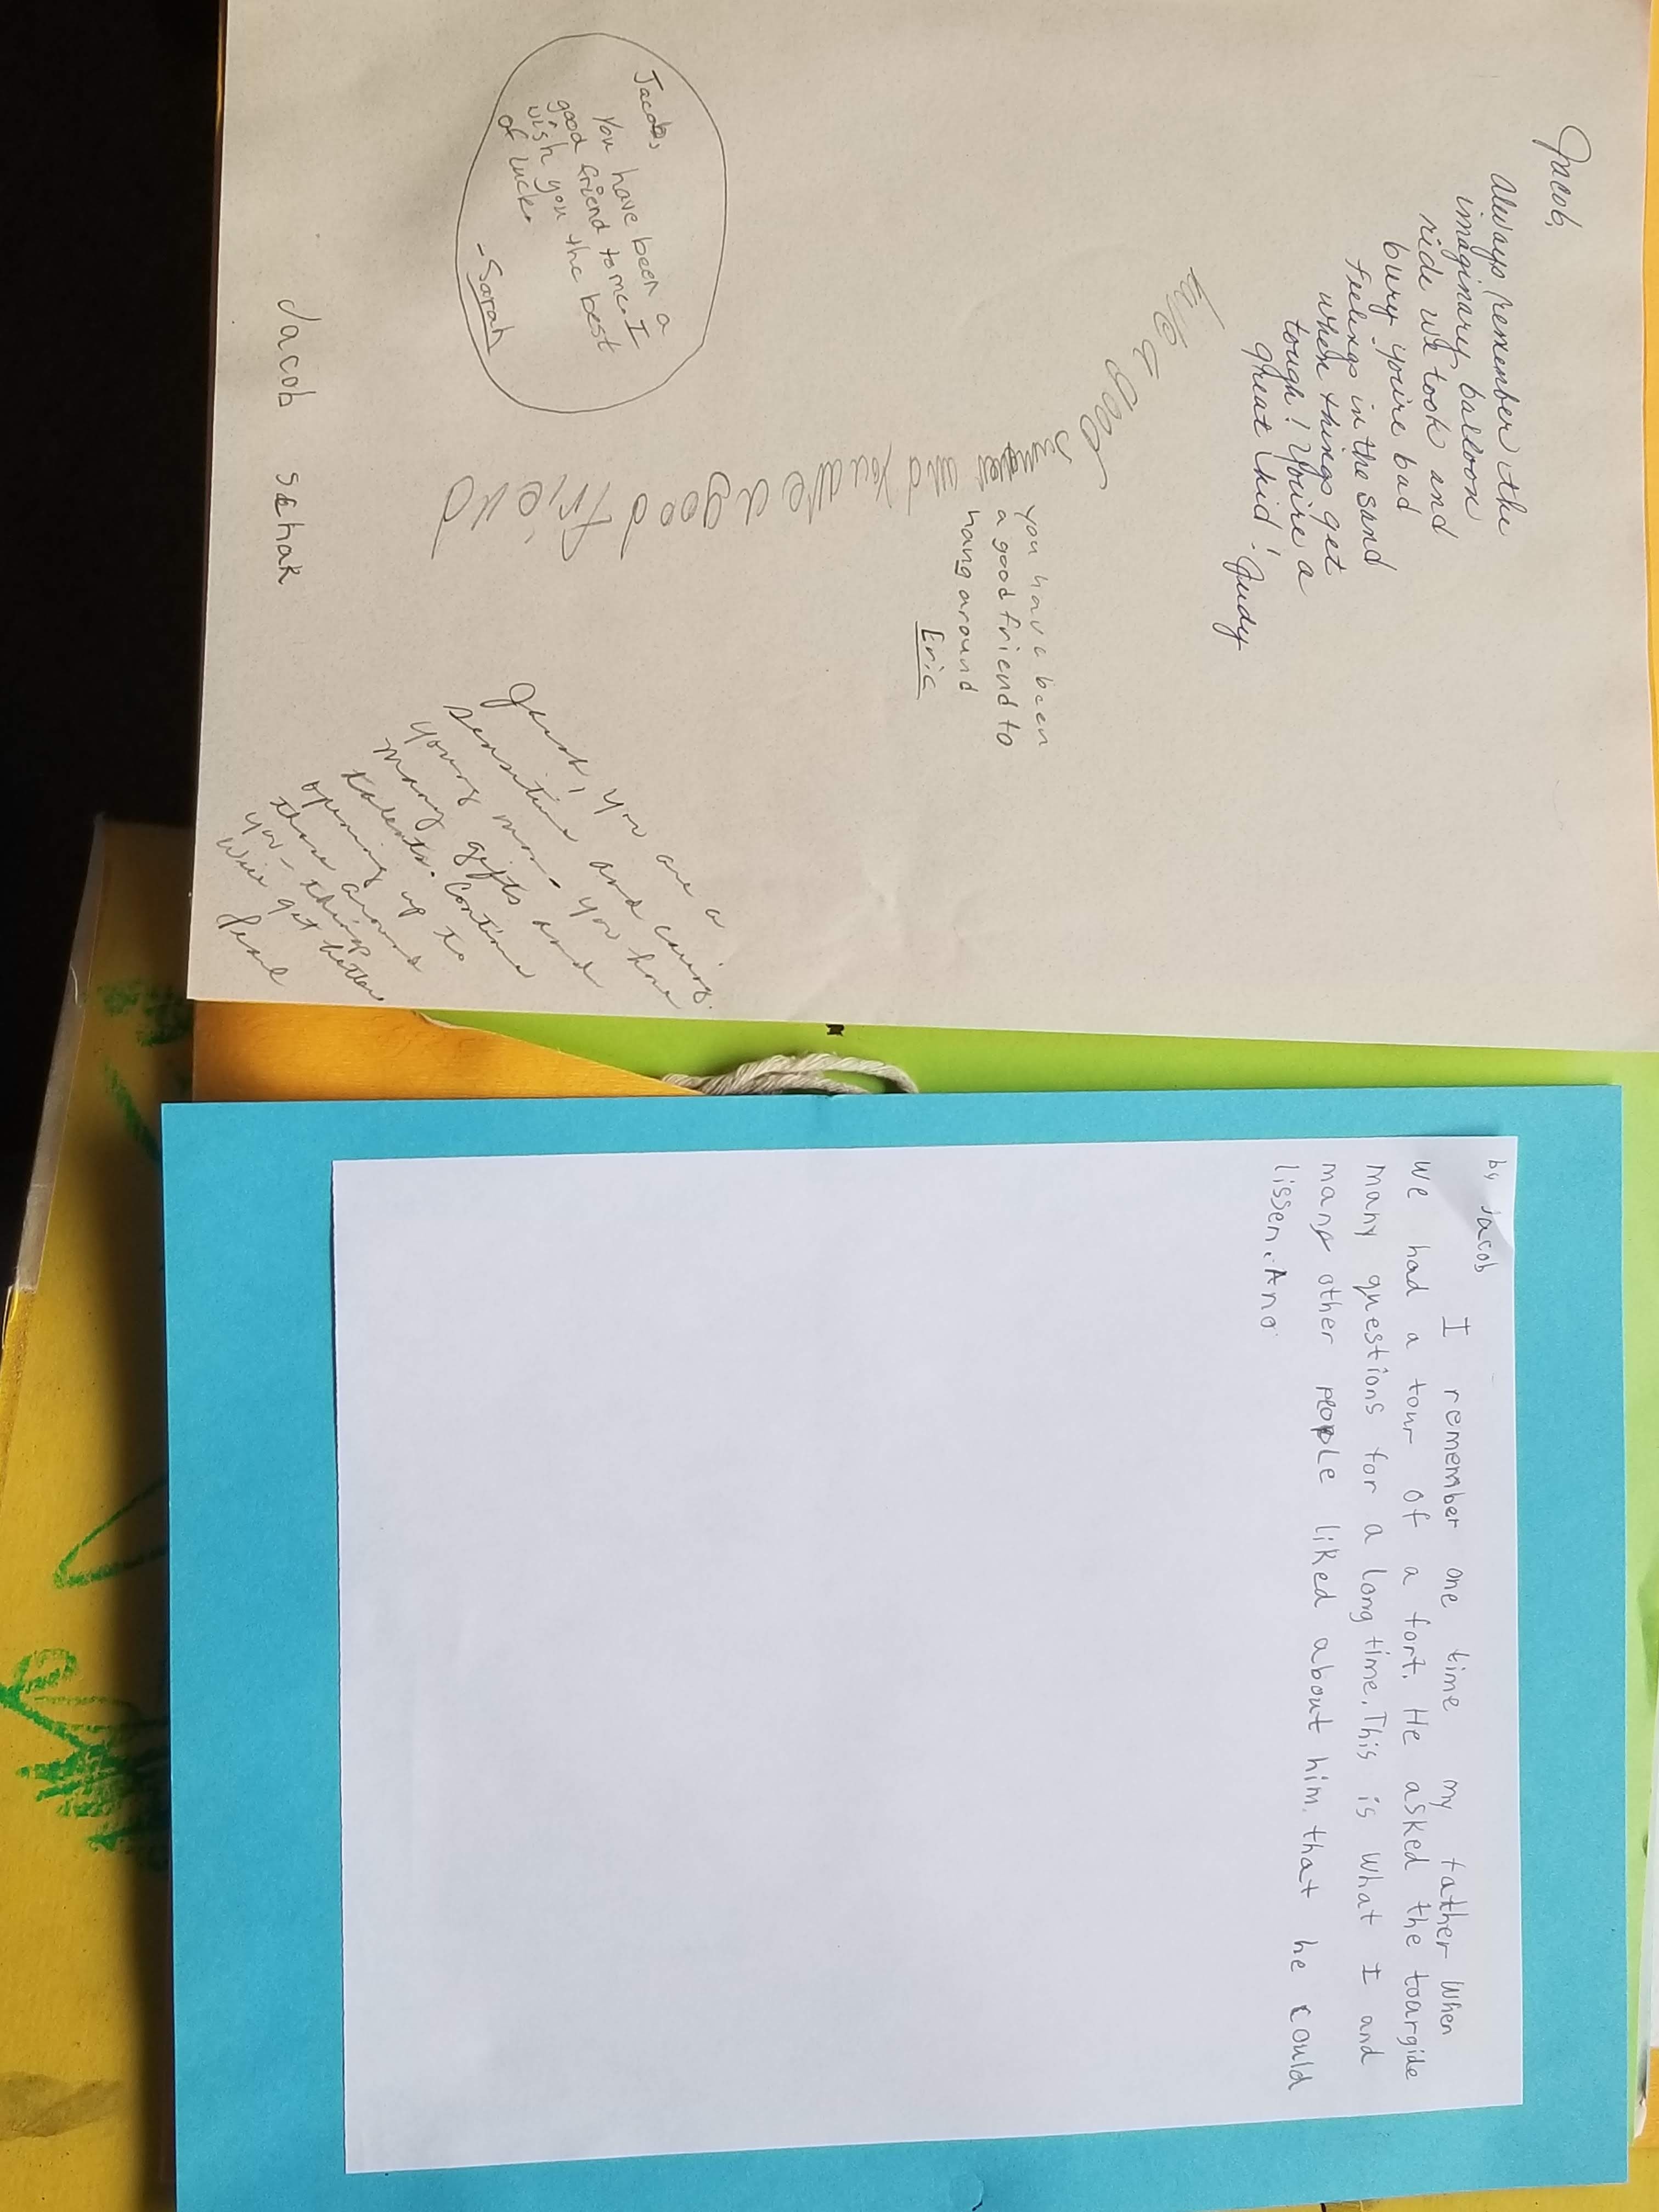 Jacob,
Always remember the
imaginary balloon
ride we took and
bury you're bad
feelings in the sand
when things get
tough! You're a
great kid! Judy
have a good
summer and You are a good friend
You have been
a good friend to
hang around
Eric
Jacob,
You have been a
good friend to me I
wish you the best
of luck.
-Sarah
Jacob, you are a
sensitive and caring
young man. You have
many gifts and
talents. Continue
opening up to
those around
you - things
will get better
Jacob Sehak
by Jacob
I remember one time my father when
we had a tour of a fort. He asked the toargide
many questions for a long time. This is what I and
many other people liked about him. that he could
lissen. And